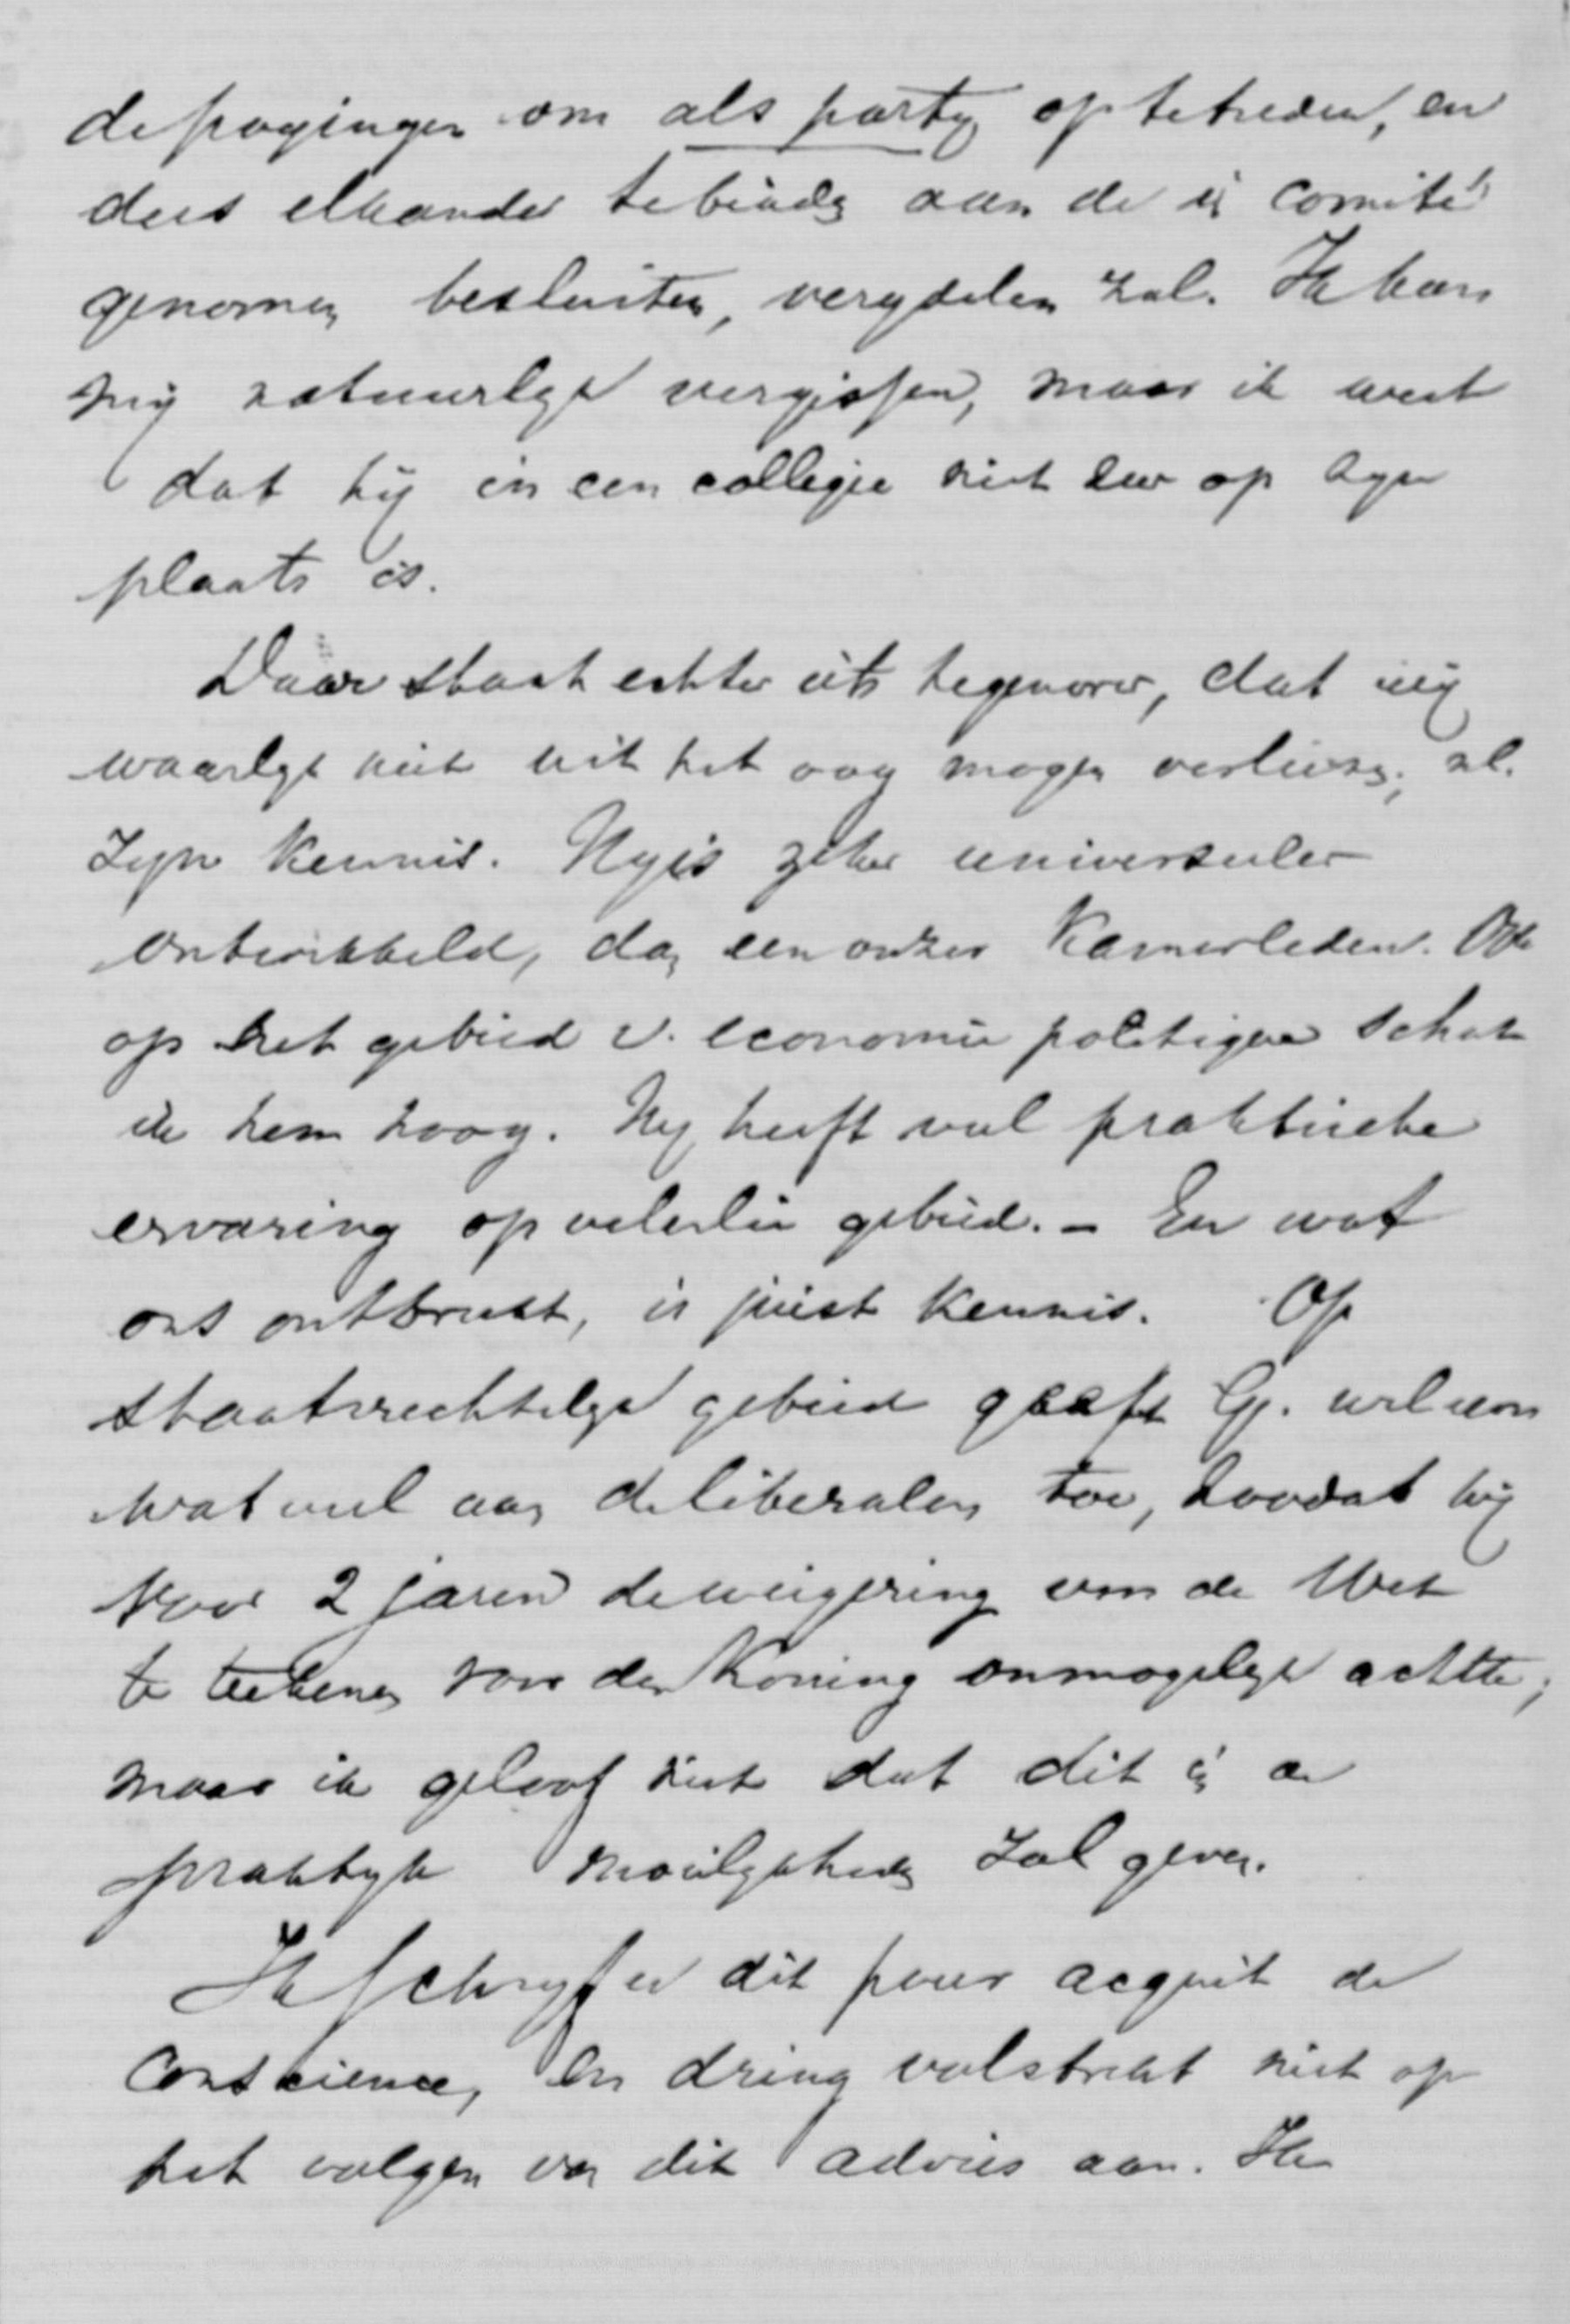 de pogingen om als party op te treden, en
dus elkander te binden aan de in comité
genomen besluiten, verydelen zal. Ik kan
my natuurlyk vergissen, maar ik weet
dat hy in een college niet zeer op zyn
plaats is.
Daar staat echter iets tegenover, dat wy
waarlyk niet uit het oog mogen verliezen; nl.
zyn kennis. Hy is zeker universeeler
ontwikkeld, dan een onzer Kamerleden. Ook
op het gebied v. economie politique schat
ik hem hoog. Hy heeft veel praktische
ervaring op velerlei gebied. – En wat
ons ontbreekt, is juist kennis. Op
staatsrechtelyk gebied geeft Gj. wel eens
wat veel aan de liberalen toe, zoodat hy
voor 2 jaren de weigering om de Wet
te teekenen voor den Koning onmogelyk achtte;
maar ik geloof niet dat dit in de
praktyk moeilykheden zal geven.
Ik schryf u dit pour acquit de
conscience, en dring volstrekt niet op
het volgen van dit advies aan. Ik